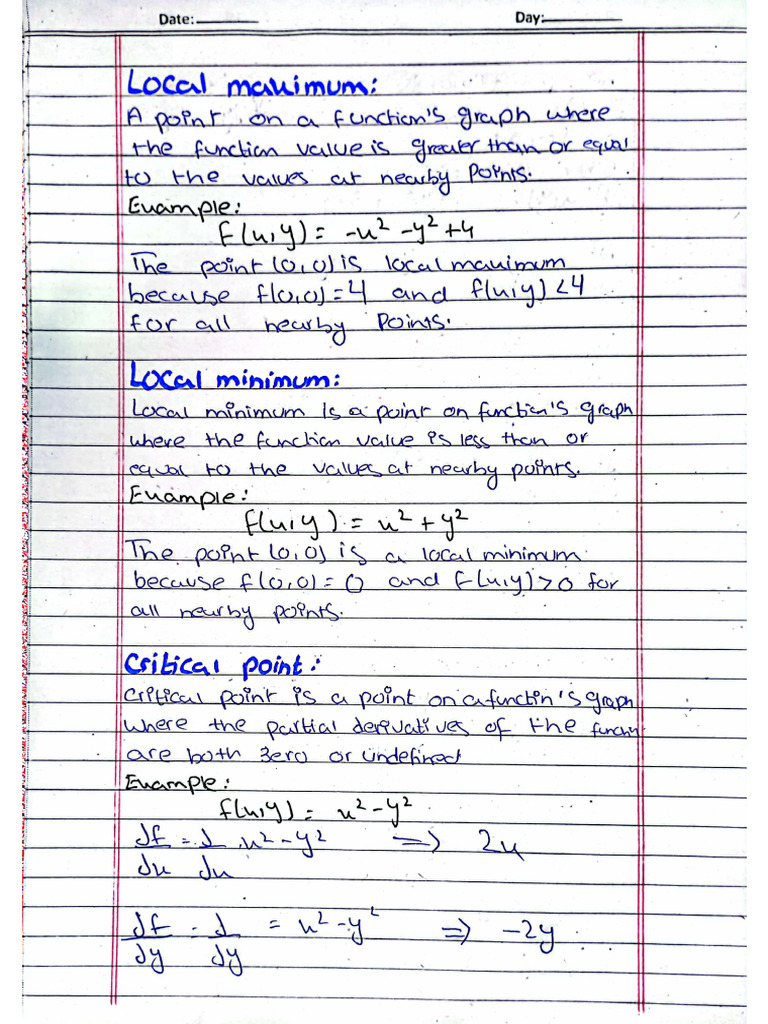 Date:
Day:
Local maximum:
A point on a function's graph where
the function value is greater than or equal
to the values at nearby points.
Example:
f(x,y) = -x² -y² +4
The point (0,0) is local maximum
because f(0,0)=4 and f(x,y) <4
for all nearby points.
Local minimum:
Local minimum is a point on function's graph
where the function value is less than or
equal to the values at nearby points.
Example:
f(x,y) = x² + y²
The point (0,0) is a local minimum
because f(0,0)= 0 and f(x,y)>0 for
all nearby points.
Critical point:
Critical point is a point on a functin's graph
where the partial derivatives of the function
are both zero or undefined
Example:
f(x,y) = x² - y²
df/dx = d/dx x² - y² => 2x
df/dy = d/dy = x² - y² => -2y